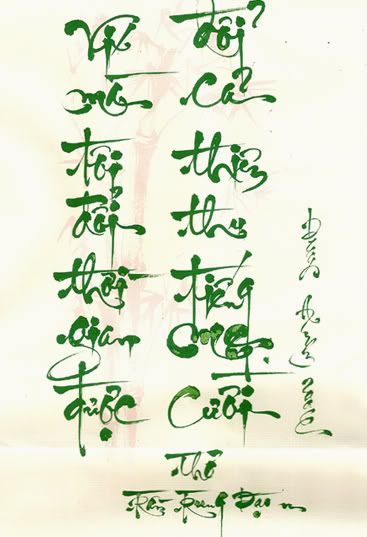 Ví mà tôi đổi thời gian được
Đổi cả thiên thu tiếng mẹ cười
Thơ
Trần Trung Đạo